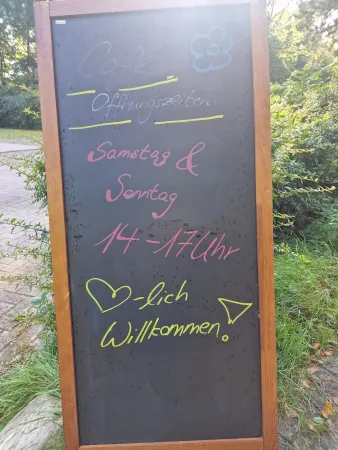 Café
Öffnungszeiten:
Samstag &
Sonntag
14-17 Uhr
♡-lich
Willkommen!